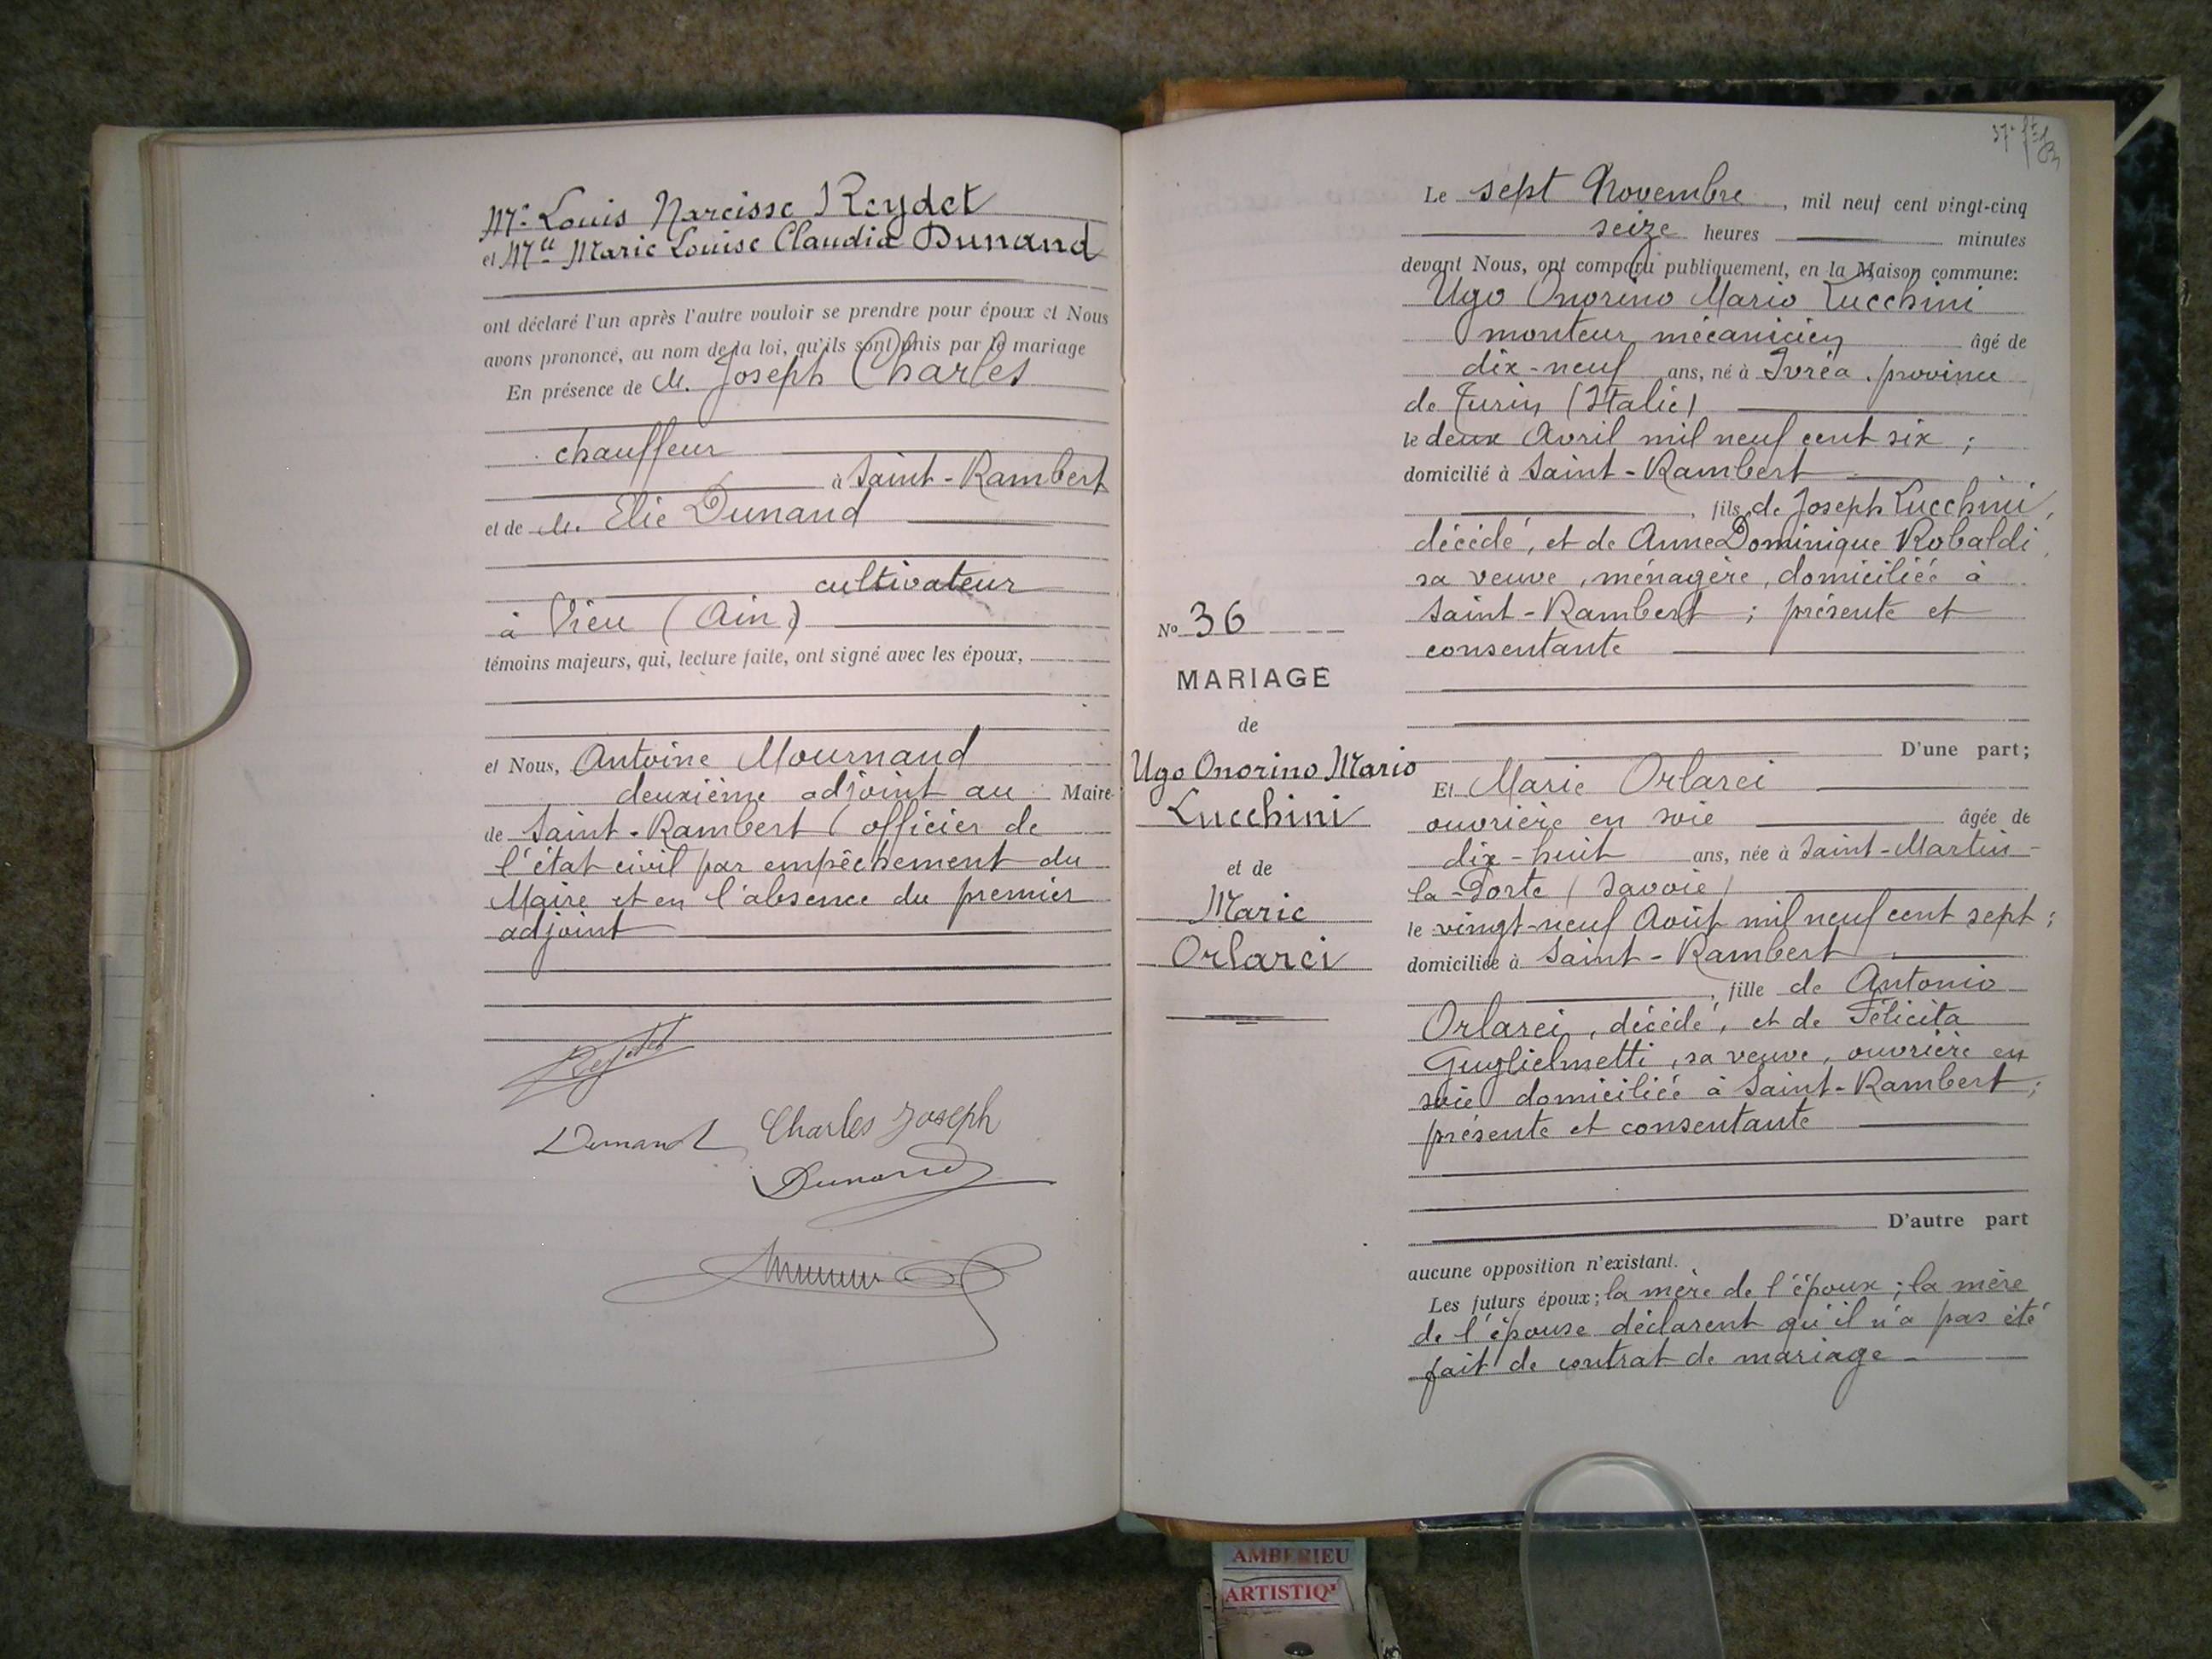 Mr Louis Narcisse Reydet
et Mlle Marie Louise Claudia Dunand
ont déclaré l'un après l'autre vouloir se prendre pour époux et Nous
avons prononcé, au nom de la loi, qu'ils sont unis par le mariage
En présence de M. Joseph Charles
chauffeur
à Saint-Rambert
et de M. Elie Dunand
cultivateur
à Vieu (Ain)
témoins majeurs, qui, lecture faite, ont signé avec les époux,
et Nous, Antoine Mournaud
deuxième adjoint au Maire
de Saint-Rambert (officier de
l'état civil par empêchement du
Maire et en l'absence du premier
adjoint
Reydet
Dunand Charles Joseph
Dunand
Le sept Novembre, mil neuf cent vingt-cinq
seize heures minutes
devant Nous, ont comparu publiquement, en la Maison commune:
Ugo Onorino Mario Lucchini
monteur mécanicien âgé de
dix-neuf ans, né à Ivréa, province
de Turin (Italie)
le deux Avril mil neuf cent six ;
domicilié à Saint-Rambert
, fils de Joseph Lucchini,
décédé, et de Anne Dominique Robaldi,
sa veuve, ménagère, domiciliée à
Saint-Rambert ; présente et
consentante
D'une part;
No 36
MARIAGE
de
Ugo Onorino Mario
Lucchini
et de
Marie
Orlarei
Et Marie Orlarei
ouvrière en soie âgée de
dix-huit ans, née à Saint-Martin-
la-Porte (Savoie)
le vingt-neuf Août mil neuf cent sept ;
domiciliée à Saint-Rambert
, fille de Antonio
Orlarei, décédé, et de Félicita
Guglielmetti, sa veuve, ouvrière en
soie domiciliée à Saint-Rambert ;
présente et consentante
D'autre part
aucune opposition n'existant.
Les futurs époux ; la mère de l'époux ; la mère
de l'épouse déclarent qu'il n'a pas été
fait de contrat de mariage
AMBERIEU
ARTISTIQ'